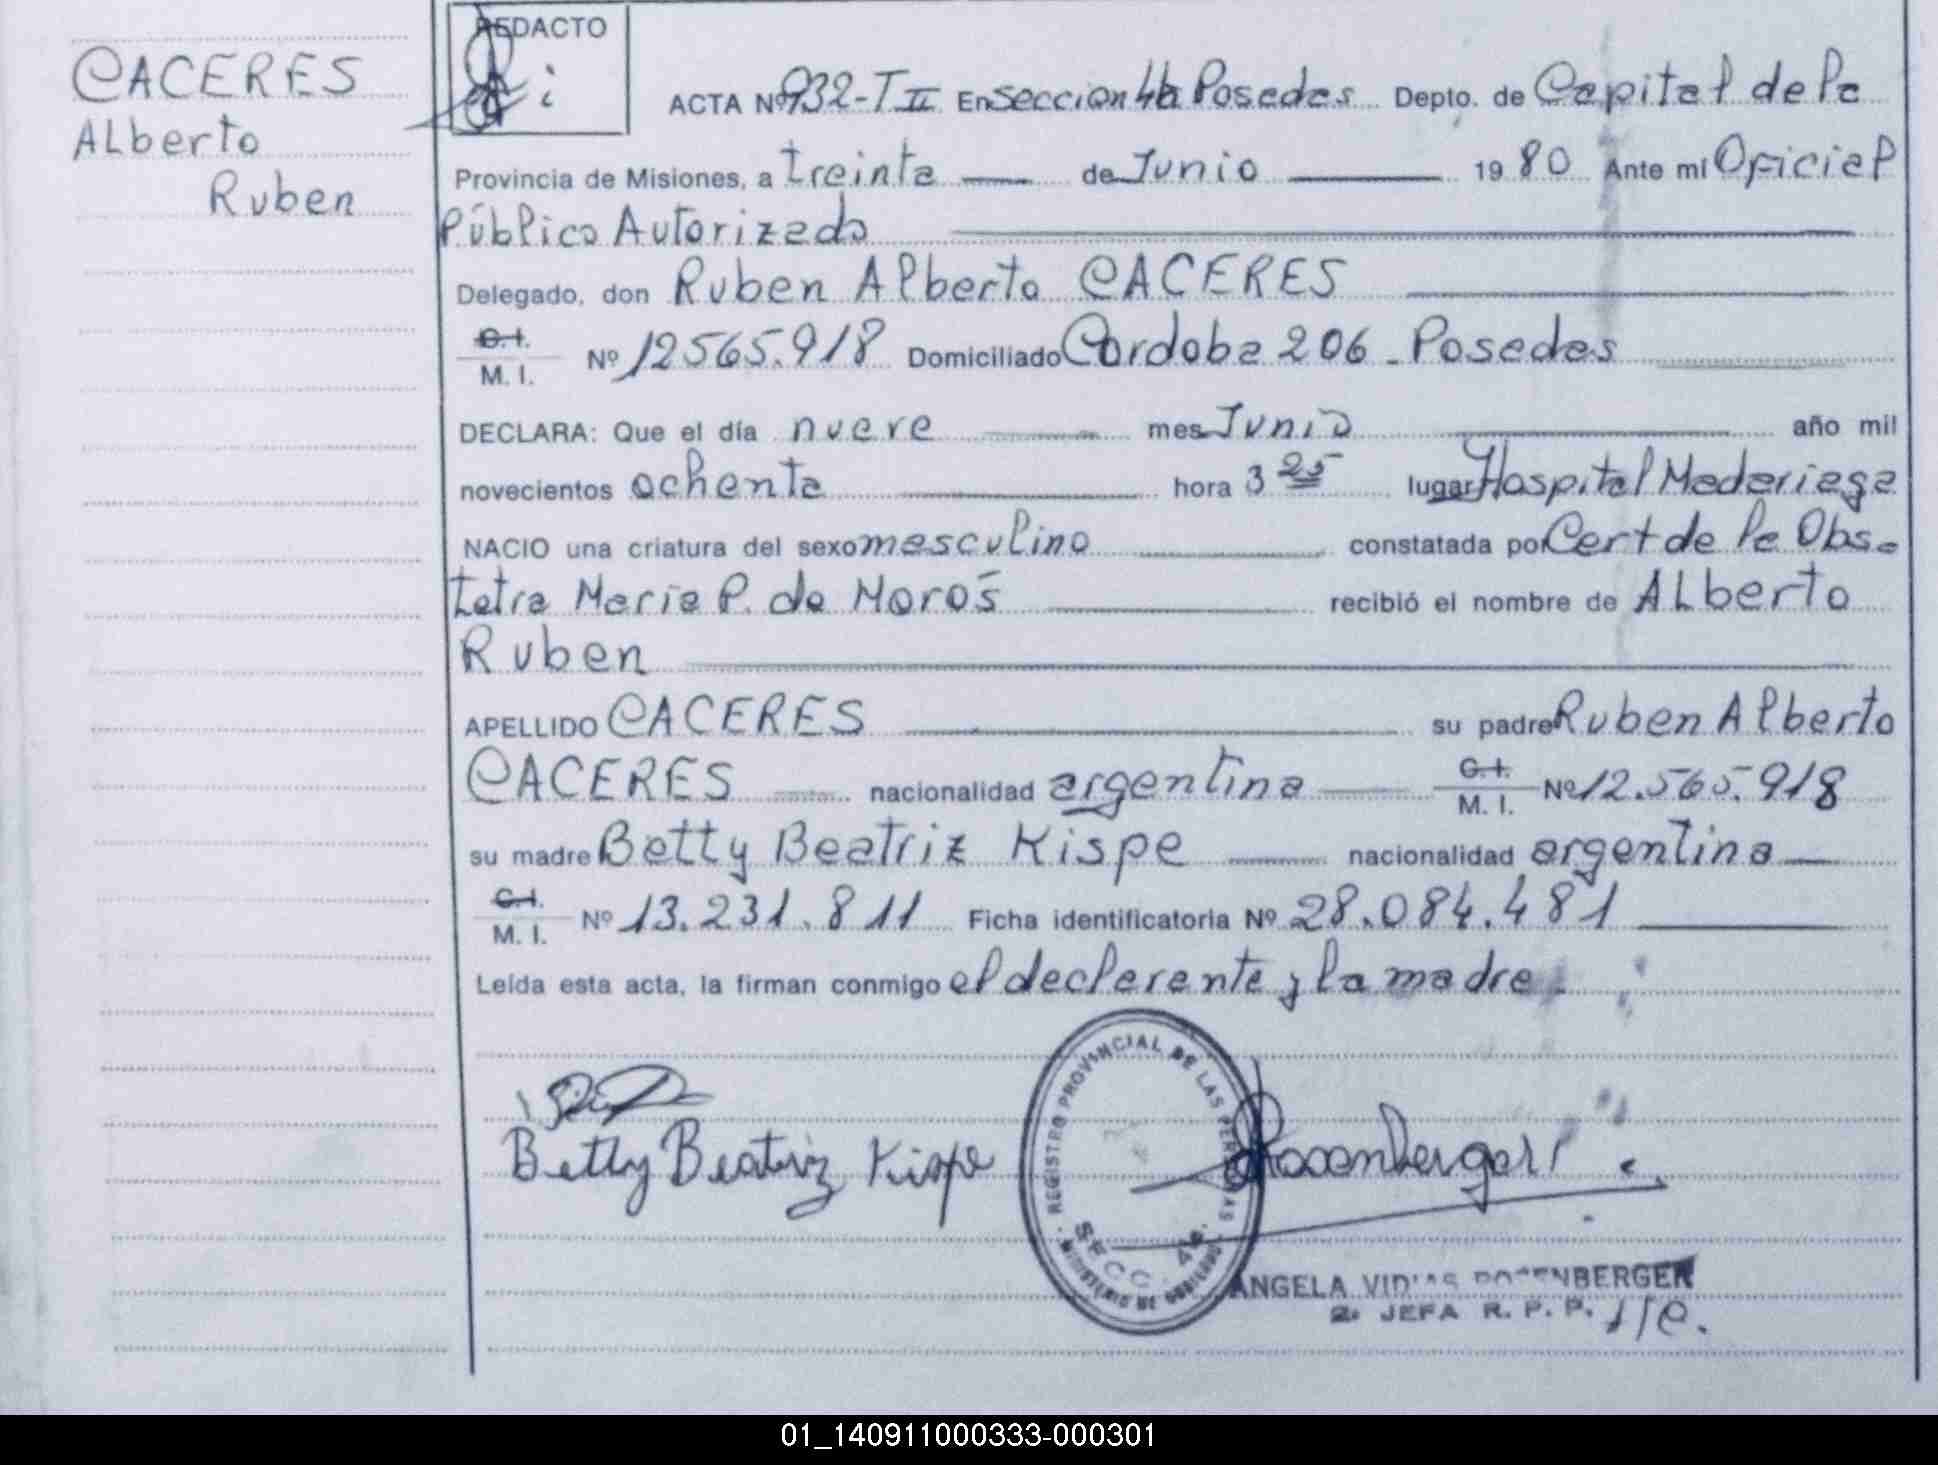 CACERES
Alberto
Ruben
REDACTO
ACTA Nº 932-T II En seccion 4ta Posadas Depto. de Capital de la
Provincia de Misiones, a treinta de Junio 1980 Ante mi Oficial
Público Autorizado
Delegado, don Ruben Alberto CACERES
C.I.
M. I. Nº 12565.918 Domiciliado Cordoba 206 - Posadas
DECLARA: Que el día nueve mes Junio año mil
novecientos ochenta hora 3 25 lugar Hospital Madariaga
NACIO una criatura del sexo masculino constatada por Cert de la Obs-
tetra Maria P. de Moros recibió el nombre de Alberto
Ruben
APELLIDO CACERES su padre Ruben Alberto
CACERES nacionalidad argentina C.I. M. I. Nº 12.565.918
su madre Betty Beatriz Kispe nacionalidad argentina
C.I.
M. I. Nº 13.231.811 Ficha identificatoria Nº 28.084.481
Leída esta acta, la firman conmigo el declarente y la madre
Betty Beatriz Kispe
REGISTRO PROVINCIAL DE LAS PERSONAS
SECC. 4a.
MINISTERIO DE GOBIERNO
Rosenberger
ANGELA ROSENBERGER
2a JEFA R. P. P.
01_140911000333-000301